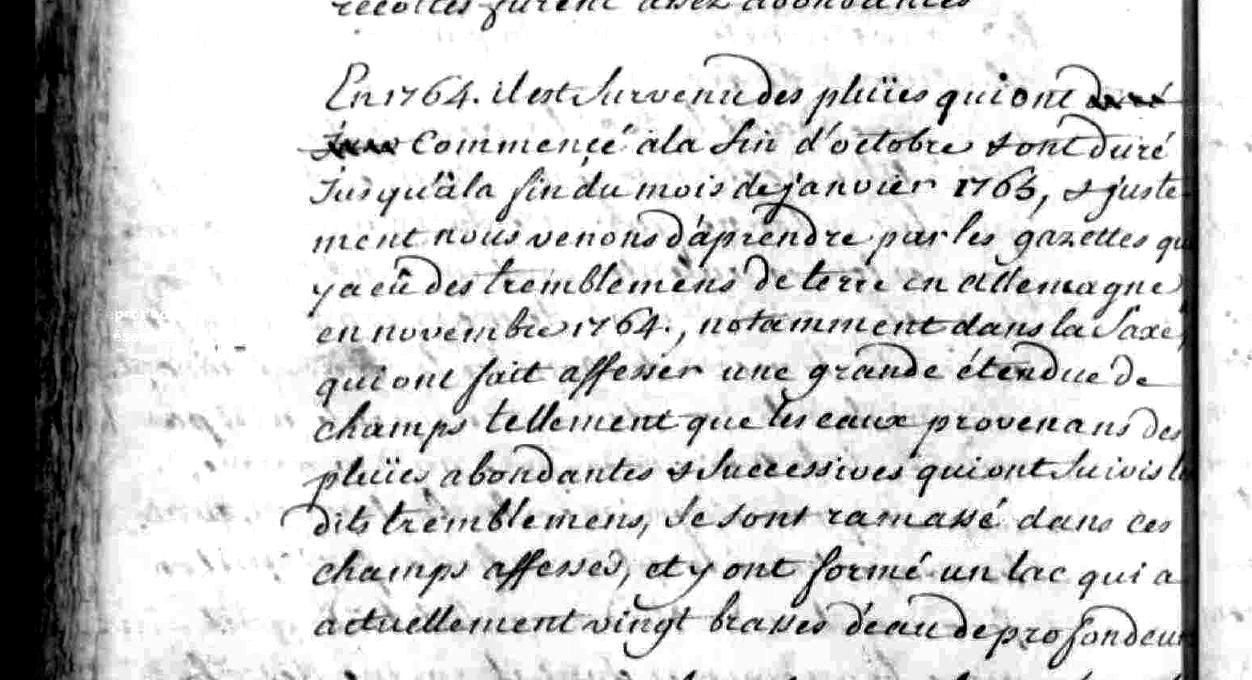 recoltes furent assez abondantes
En 1764. il est survenu des pluïes qui ont duré
Commençé à la fin d'octobre & ont duré
Jusqu'à la fin du mois de janvier 1765, & juste
ment nous venons d'aprendre par les gazettes qu
y a eû des tremblemens de terre en allemagne
en novembre 1764., notamment dans la Saxe,
qui ont fait affesser une grande étendue de
champs tellement que les eaux provenans des
pluïes abondantes & successives qui ont suivis l
dits tremblemens, se sont ramassé dans ces
champs affessés, et y ont formé un lac qui a
actuellement vingt brasses d'eau de profondeu